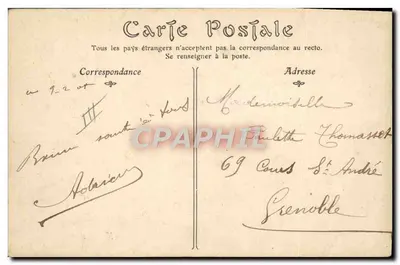 Carte Postale
Tous les pays étrangers n'acceptent pas la correspondance au recto.
Se renseigner à la poste.
Correspondance
Adresse
III
Mademoiselle
Bonne santé à tous
CPAPHIL
Paulette Thomasset
69 Cours St André
Grenoble